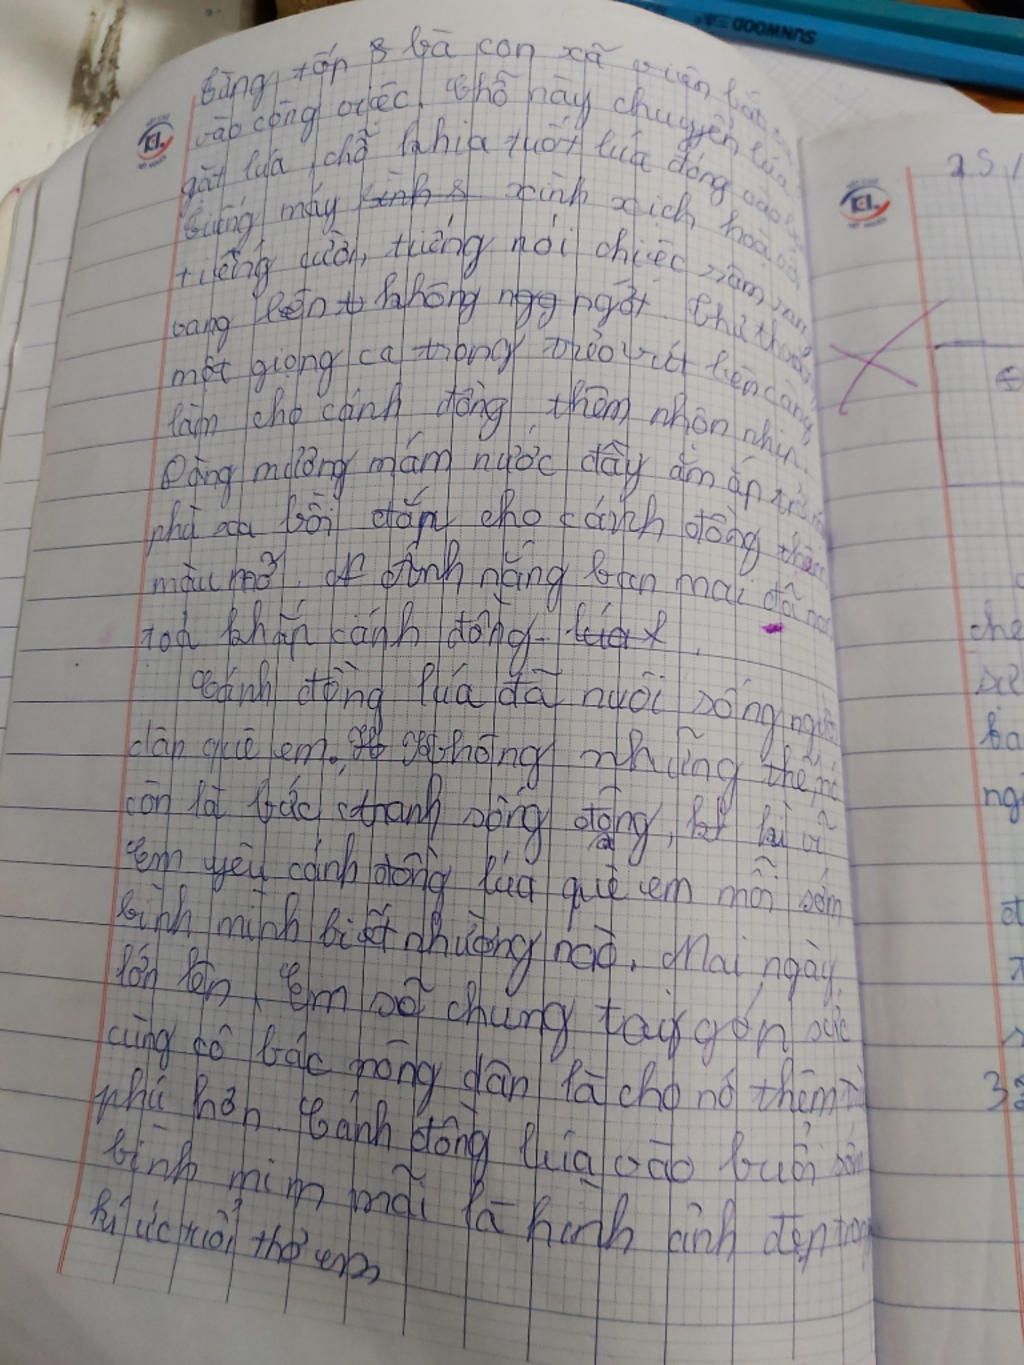 SUNWOOD
từng tốp 8 bà con xã viên bắt
vào công việc. Chỗ này chuyển lúa
gặt lúa, chỗ khia tuốt lúa đóng vào
tiếng máy xình xịch, hoà
tiếng cười, tiếng nói chiệc râm ran
vang lên không ngớt. Thi thoảng
một giọng ca trong trẻo vút lên càng
làm cho cánh đồng thêm nhộn nhịp.
Dòng mương mám nước đầy ăm ắp
phù xa bồi đắp cho cánh đồng thêm
màu mỡ. ánh nắng ban mai đã
toả khắp cánh đồng.
Cánh đồng lúa đã nuôi sống người
dân quê em. Không những thế nó
còn là bức tranh sống động,
Em yêu cánh đồng lúa quê em mỗi sớm
bình minh biết nhường nào. Mai ngày
lớn lên, Em sẽ chung tay góp sức
cùng cô bác nông dân là cho nó thêm
phú hơn. Cánh đồng lúa vào buổi sớm
bình minh mãi là hình ảnh đẹp trong
kí ức tuổi thơ em